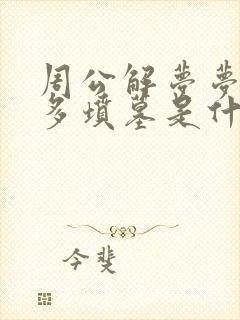 周公解夢夢
多墳墓是什
今斐